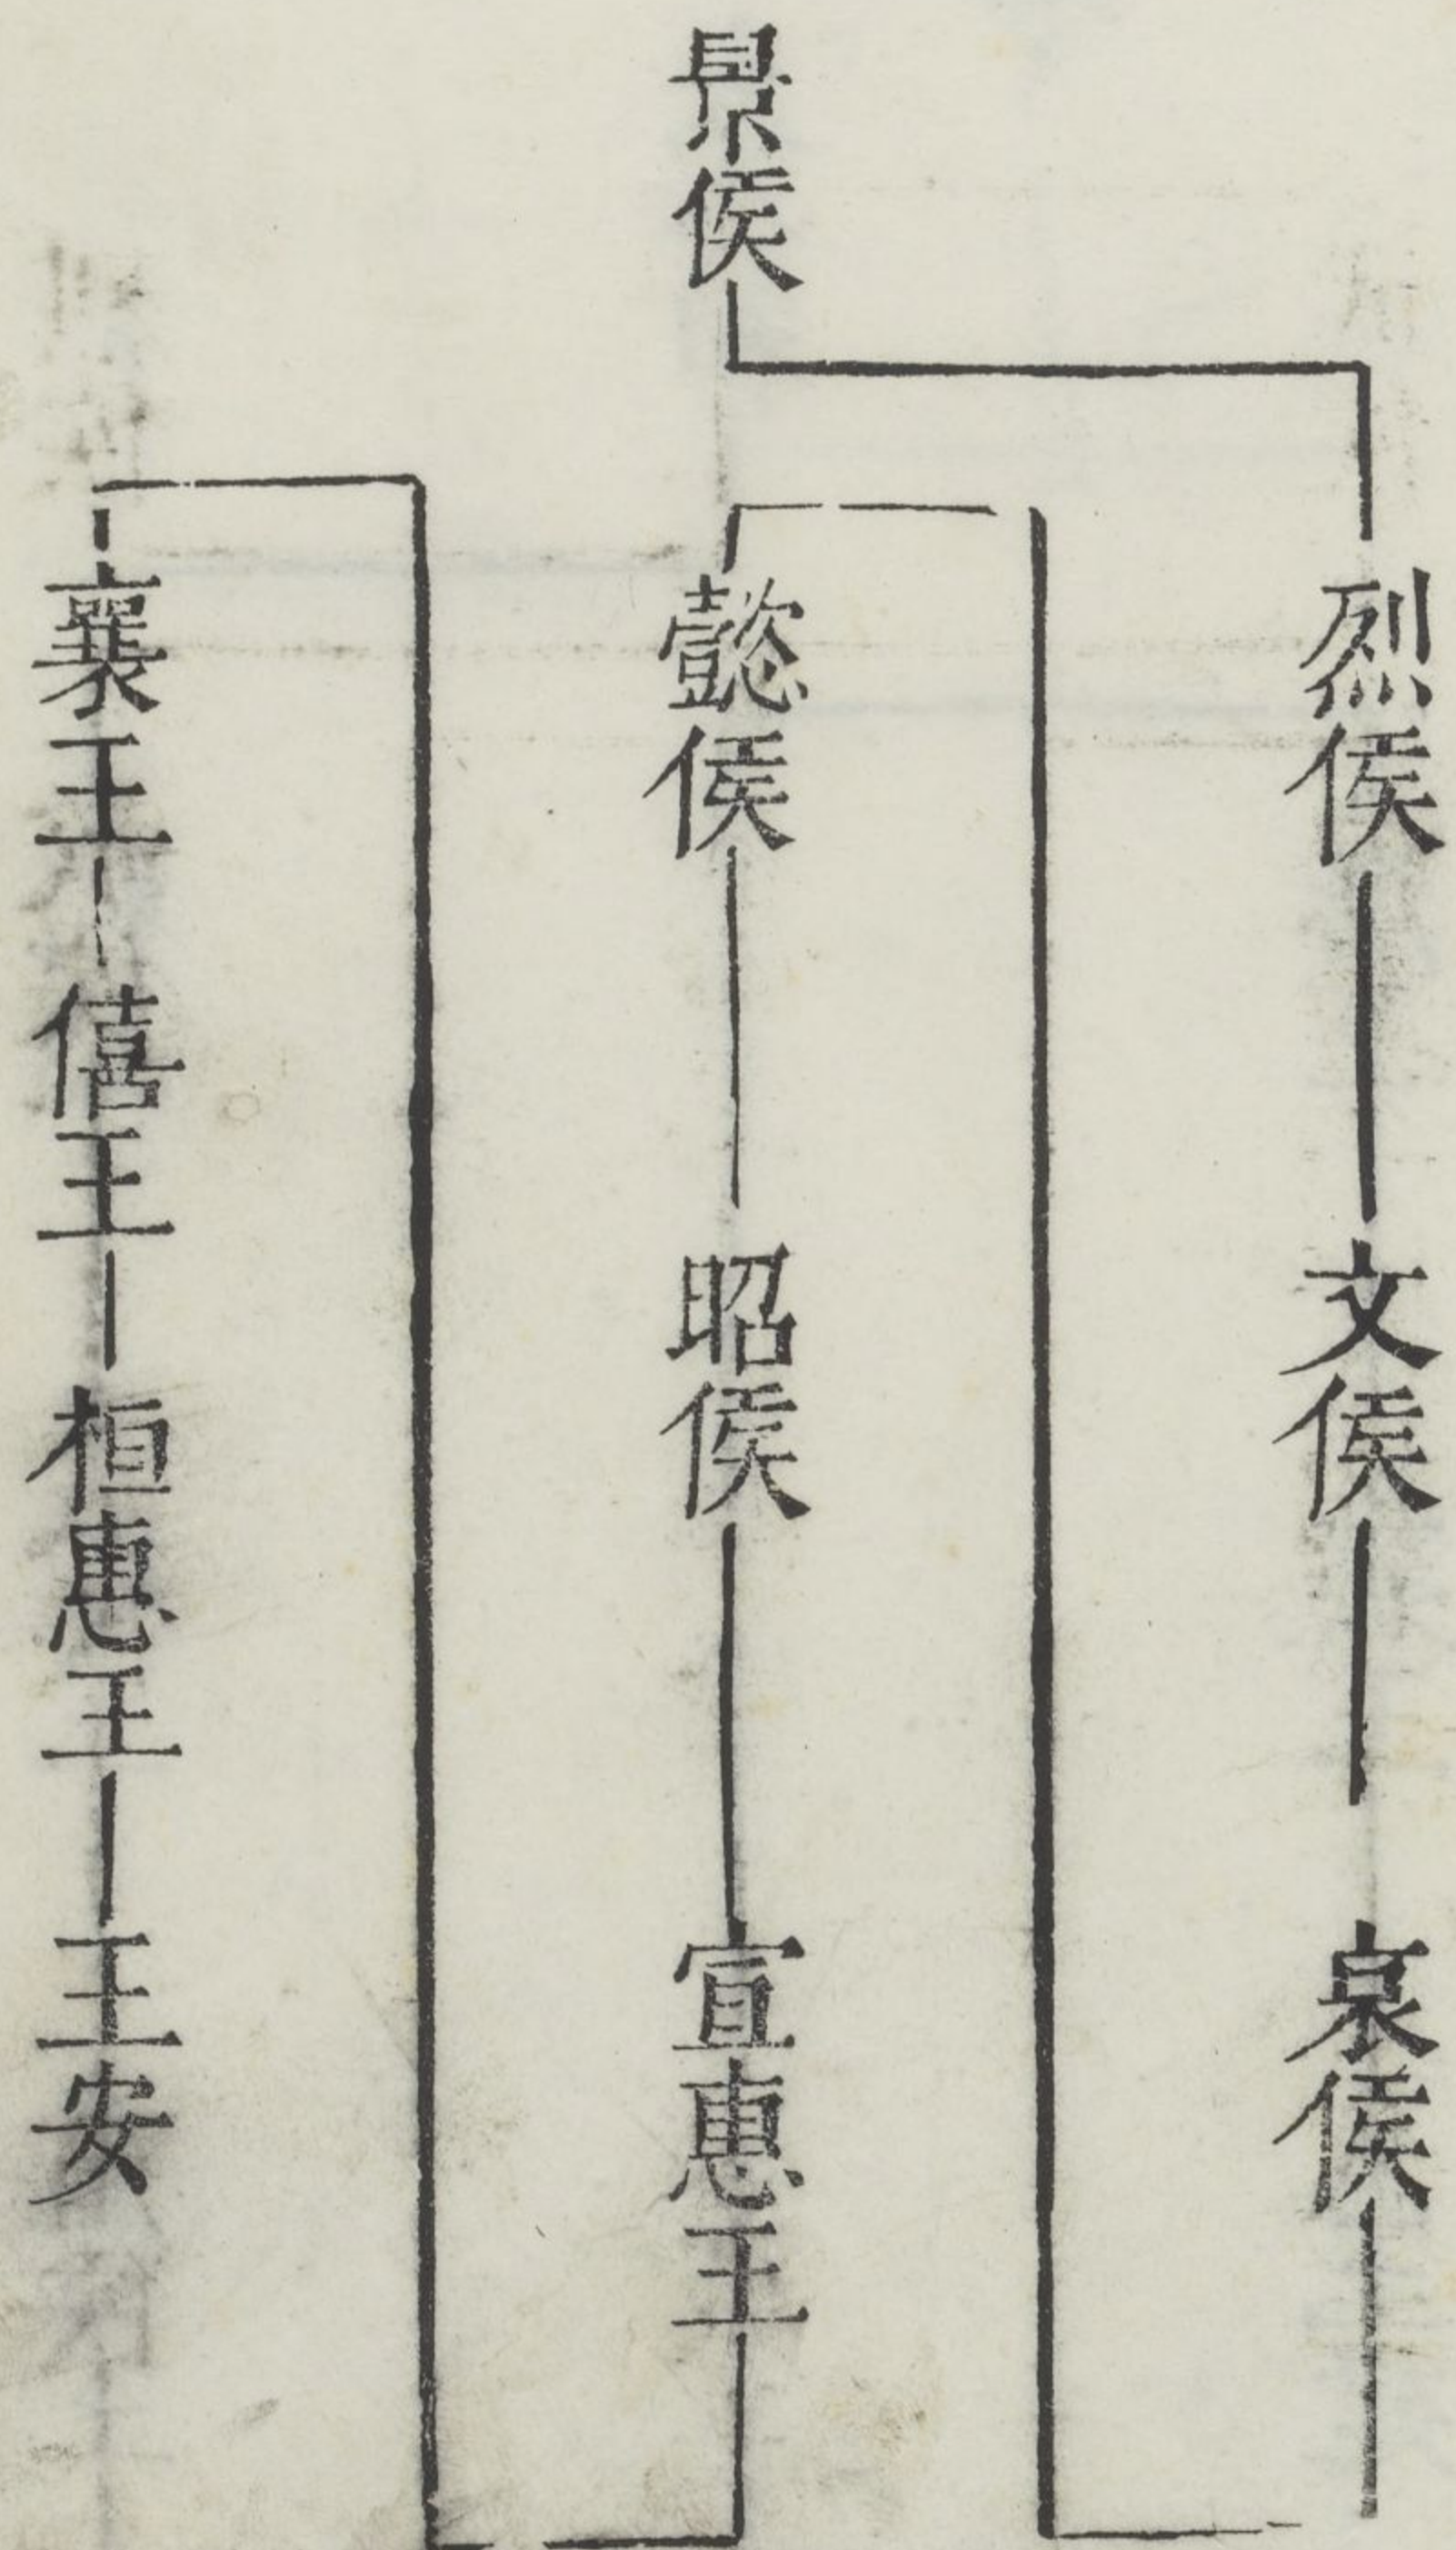 景侯
烈侯
文侯
哀侯
懿侯
昭侯
宣惠王
襄王
僖王
桓惠王
王安